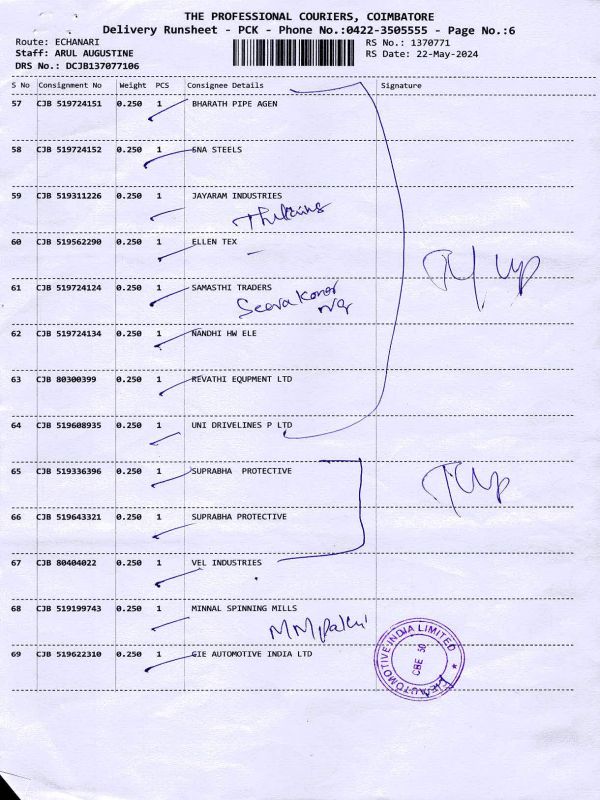 THE PROFESSIONAL COURIERS, COIMBATORE
Delivery Runsheet - PCK - Phone No.:0422-3505555 - Page No.:6
Route: ECHANARI RS No.: 1370771
Staff: ARUL AUGUSTINE RS Date: 22-May-2024
DRS No.: DCJB137077106
S No Consignment No Weight PCS Consignee Details Signature
57 CJB 519724151 0.250 1 BHARATH PIPE AGEN
58 CJB 519724152 0.250 1 SNA STEELS
59 CJB 519311226 0.250 1 JAYARAM INDUSTRIES
60 CJB 519562290 0.250 1 ELLEN TEX
61 CJB 519724124 0.250 1 SAMASTHI TRADERS
62 CJB 519724134 0.250 1 NANDHI HW ELE
63 CJB 80300399 0.250 1 REVATHI EQUPMENT LTD
64 CJB 519608935 0.250 1 UNI DRIVELINES P LTD
65 CJB 519336396 0.250 1 SUPRABHA PROTECTIVE
66 CJB 519643321 0.250 1 SUPRABHA PROTECTIVE
67 CJB 80404022 0.250 1 VEL INDUSTRIES
68 CJB 519199743 0.250 1 MINNAL SPINNING MILLS
69 CJB 519622310 0.250 1 GIE AUTOMOTIVE INDIA LTD
AUTOMOTIVE INDIA LIMITED
CBE 50